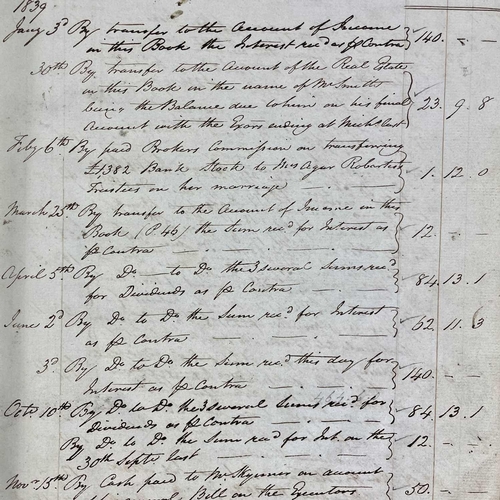 1839
Jany 3d By transfer to the Account of Income
in this Book the Interest recd as pr Contra } 140. - -
30th By transfer to the Account of the Real Estate
in this Book in the name of Mr Smith
being the Balance due to him on his final
Account with the Exors ending at Michs last } 23. 9. 8
Feby 6th By paid Brokers Commission on transferring
£1,382 Bank Stock to Mrs Agar Robartes
Trustees on her marriage } 1. 12. 0
March 25th By transfer to the Account of Income in this
Book (P 46) the Sum recd for Interest as
pr Contra } 12. - -
April 5th By Do to Do the 3 several Sums recd
for Dividends as pr Contra } 84. 13. 1
June 2d By Do to Do the Sum recd for Interest
as pr Contra } 62. 11. 3
3d By Do to Do the Sum recd this day for
Interest as pr Contra } 140. - -
Octr 10th By Do to Do the 3 several Sums recd for
Dividends as pr Contra } 84. 13. 1
By Do to Do the Sum recd for Int. on the
30th Septr last } 12. - -
Novr 15th By Cash paid to Mr on account
Bill on the Executors } 50. - -